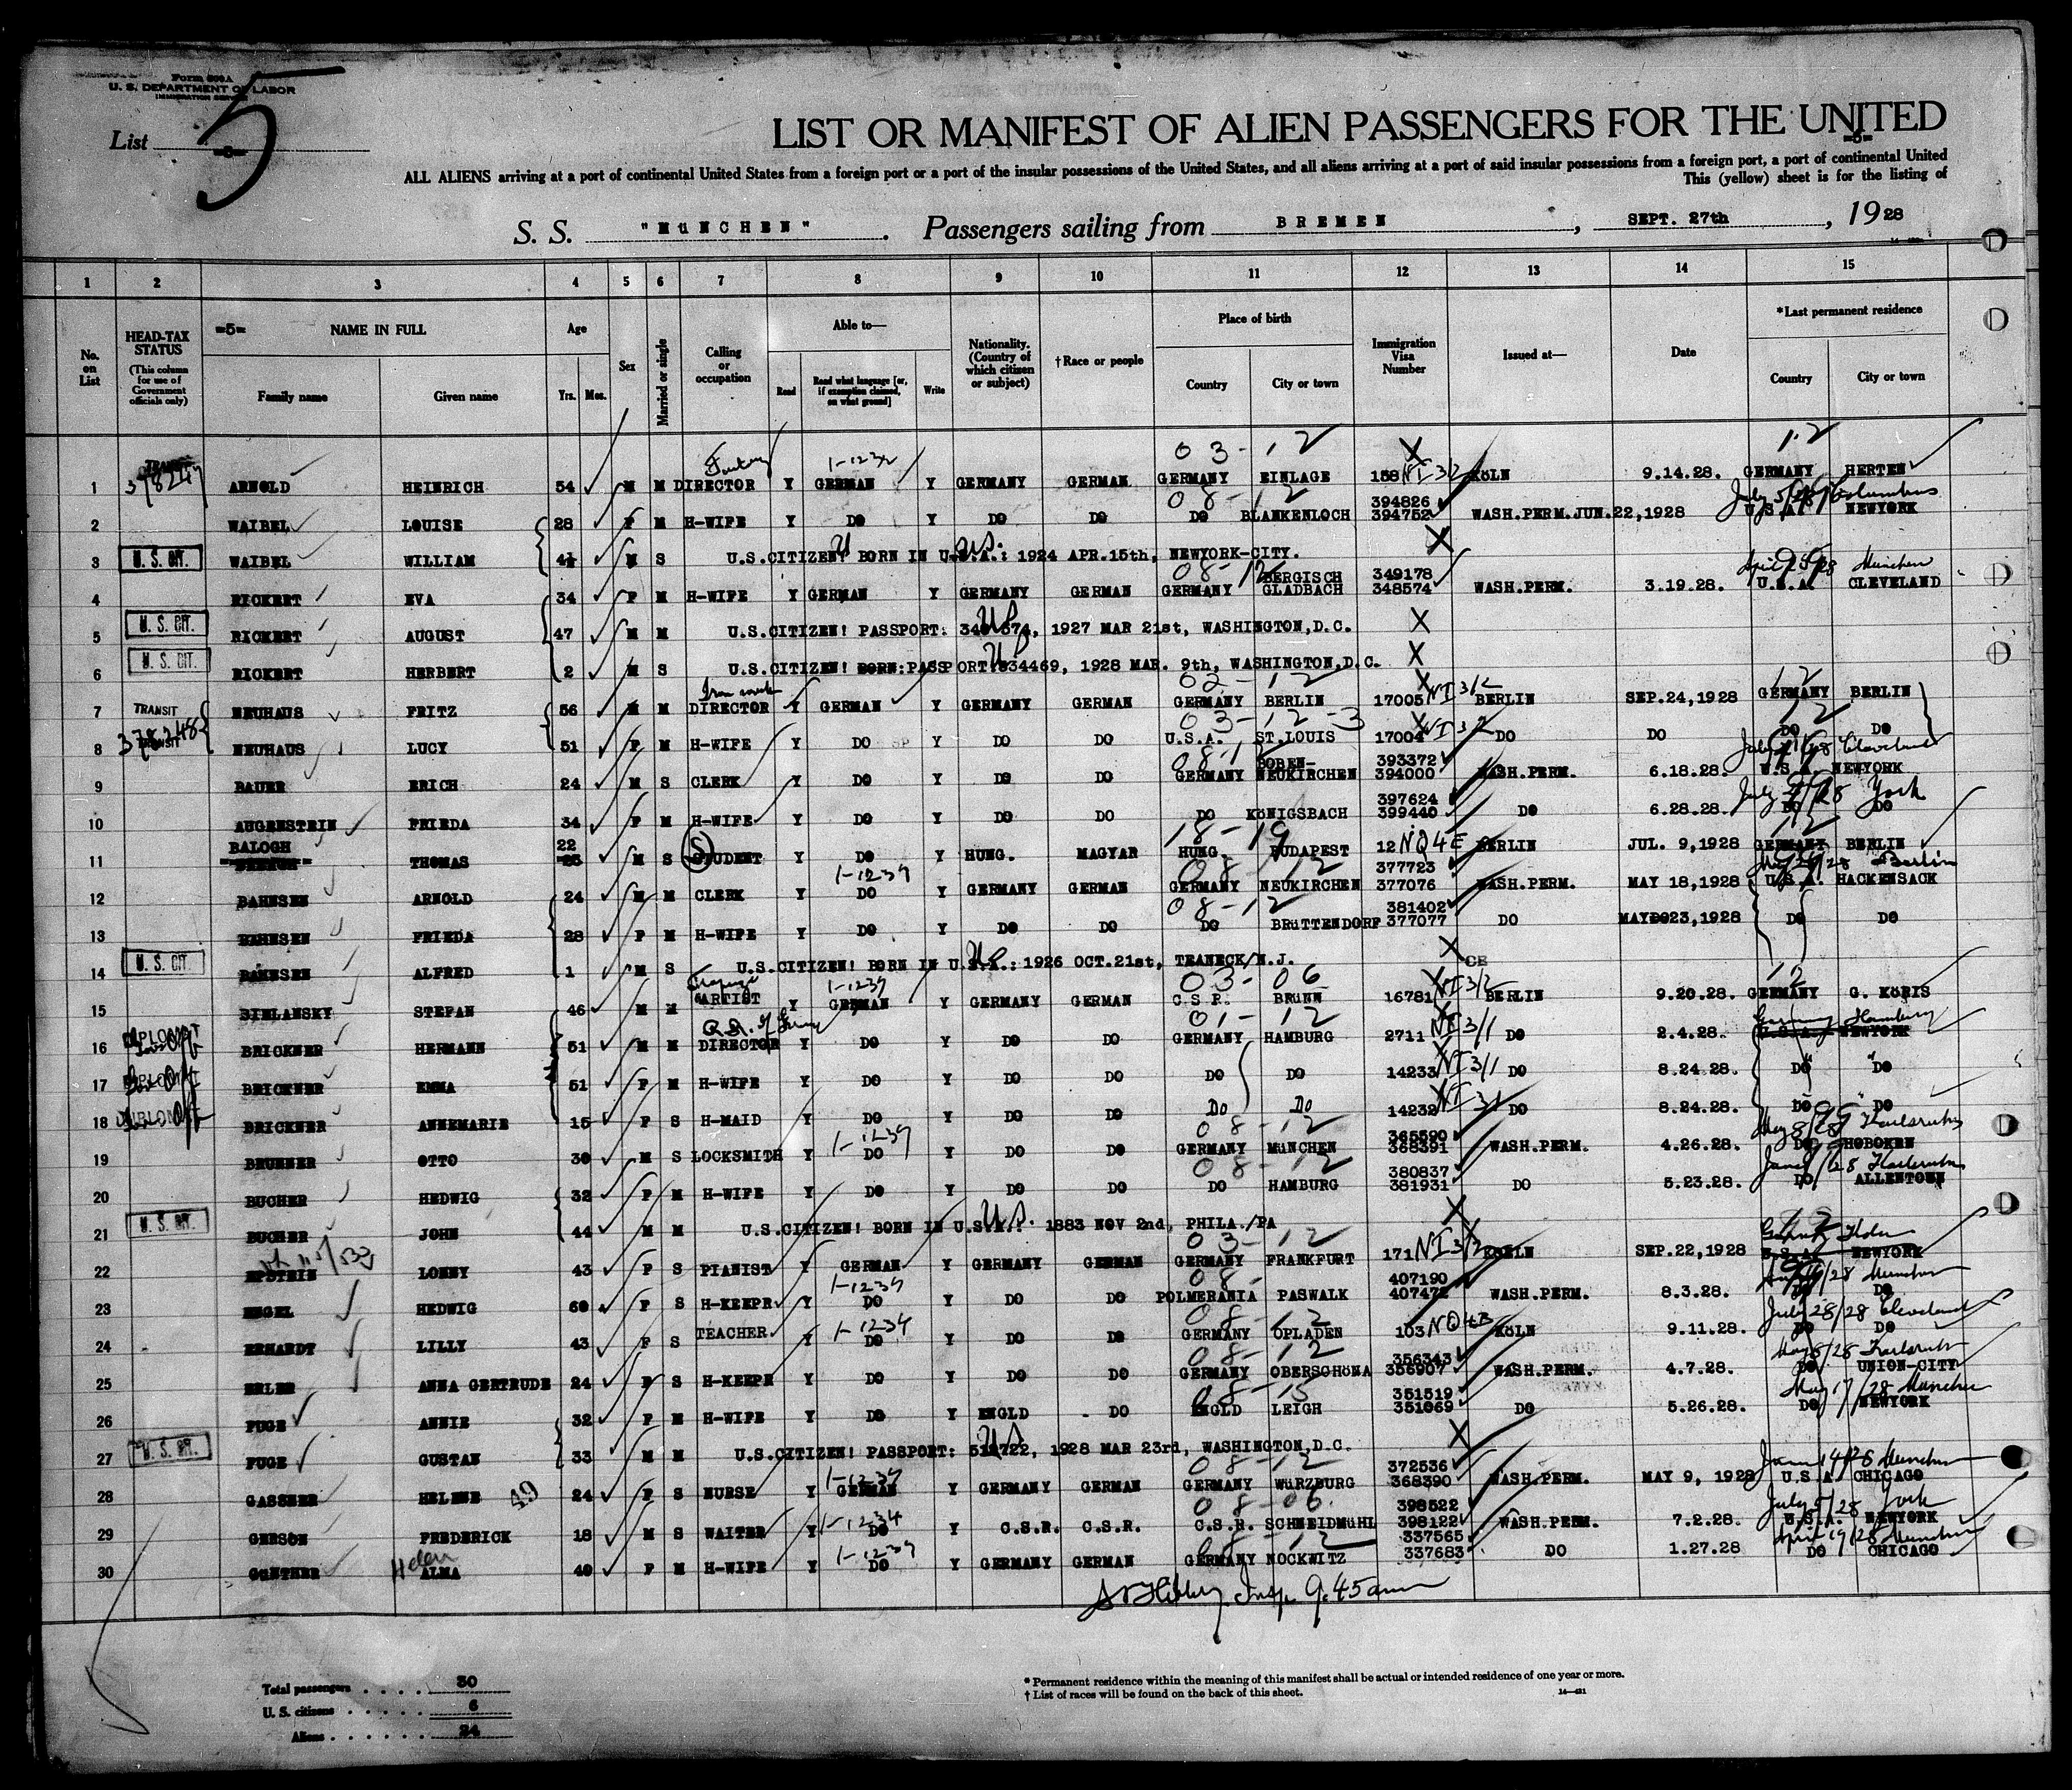 Form 500 A
U. S. DEPARTMENT OF LABOR
IMMIGRATION SERVICE
List 5
LIST OR MANIFEST OF ALIEN PASSENGERS FOR THE UNITED
=5=
ALL ALIENS arriving at a port of continental United States from a foreign port or a port of the insular possessions of the United States, and all aliens arriving at a port of said insular possessions from a foreign port, a port of continental United
This (yellow) sheet is for the listing of
S. S. "MüNCHEN". Passengers sailing from BREMEN, SEPT. 27th, 1928
1 2 3 4 5 6 7 8 9 10 11 12 13 14 15
No. on List
HEAD-TAX STATUS (This column for use of Government officials only)
=5= NAME IN FULL
Family name Given name
Age Yrs. Mos.
Sex
Married or single
Calling or occupation
Able to— Read Read what language [or, if exemption claimed, on what ground] Write
Nationality. (Country of which citizen or subject)
†Race or people
Place of birth Country City or town
Immigration Visa Number
Issued at—
Date
*Last permanent residence Country City or town
03-12 X 12
1 ARNOLD HEINRICH 54 M M DIRECTOR Y GERMAN Y GERMANY GERMAN GERMANY EINLAGE 158 NI 3/2 KöLN 9.14.28. GERMANY HERTEN
08-12 394826
2 WAIBEL LOUISE 28 F M H-WIFE Y DO Y DO DO DO BLANKENLOCH 394752 WASH.PERM. JUN.22,1928 U.S.A. NEWYORK
3 U. S. CIT. WAIBEL WILLIAM 4½ M S U.S.CITIZEN! BORN IN U.S.A.: 1924 APR.15th, NEWYORK-CITY. X
08-12 BERGISCH 349178 München
4 RICKERT EVA 34 F M H-WIFE Y GERMAN Y GERMANY GERMAN GERMANY GLADBACH 348574 WASH.PERM. 3.19.28. U.S.A. CLEVELAND
5 U. S. CIT. RICKERT AUGUST 47 M M U.S.CITIZEN! PASSPORT: 1927 MAR 21st, WASHINGTON,D.C. X
6 U. S. CIT. RICKERT HERBERT 2 M S U.S.CITIZEN! BORN:PASSPORT:834469, 1928 MAR. 9th, WASHINGTON,D.C. X
Iron works 02-12 X 12
7 TRANSIT NEUHAUS FRITZ 56 M M DIRECTOR Y GERMAN Y GERMANY GERMAN GERMANY BERLIN 17005 NI 3/2 BERLIN SEP.24,1928 GERMANY BERLIN
378248 03-12-3 X 12
8 TRANSIT NEUHAUS LUCY 51 F M H-WIFE Y DO Y DO DO U.S.A. ST.LOUIS 17004 NI 3/2 DO DO DO DO
08-12 BOBEN- 393372 Cleveland
9 BAUER ERICH 24 M S CLERK Y DO Y DO DO GERMANY NEUKIRCHEN 394000 WASH.PERM. 6.18.28. U.S.A. NEWYORK
397624 York
10 AUGENSTEIN FRIEDA 34 F M H-WIFE Y DO Y DO DO DO KöNIGSBACH 399440 DO 6.28.28. DO DO
BALOGH 22 18-19 12
11 THOMAS 25 M S STUDENT Y DO Y HUNG. MAGYAR HUNG. BUDAPEST 12 NQ4E BERLIN JUL. 9,1928 GERMANY BERLIN
1-1234 08-12 377723 Berlin
12 BAHNSEN ARNOLD 24 M M CLERK Y DO Y GERMANY GERMAN GERMANY NEUKIRCHEN 377076 WASH.PERM. MAY 18,1928 U.S.A. HACKENSACK
08-12 381402
13 BAHNSEN FRIEDA 28 F M H-WIFE Y DO Y DO DO DO BRüTTENDORF 377077 DO MAY 23,1928 DO DO
14 U. S. CIT. BAHNSEN ALFRED 1 M S U.S.CITIZEN! BORN IN U.S.A.: 1926 OCT.21st, TEANECK/N.J. X
03-06 X 12
15 BIELANSKY STEPAN 46 M M ARTIST Y GERMAN Y GERMANY GERMAN C.S.R. BRüNN 16781 NI 3/2 BERLIN 9.20.28. GERMANY G. KöRIS
01-12 Germany Hamburg
16 DIPLOMAT BRICKNER HERMANN 51 M M DIRECTOR Y DO Y DO DO GERMANY HAMBURG 2711 NI 3/1 DO 2.4.28. U.S.A. NEWYORK
17 DIPLOMAT BRICKNER EMMA 51 F M H-WIFE Y DO Y DO DO DO DO 14233 NI 3/1 DO 8.24.28. DO DO
18 DIPLOMAT BRICKNER ANNEMARIE 15 F S H-MAID Y DO Y DO DO DO DO 14232 NI 3/1 DO 8.24.28. DO DO
08-12 365590 May 8/28 Karlsruhe
19 BRUNNER OTTO 30 M S LOCKSMITH Y DO Y DO DO GERMANY MüNCHEN 368391 WASH.PERM. 4.26.28. DO HOBOKEN
08-12 380837 Karlsruhe
20 BUCHER HEDWIG 32 F M H-WIFE Y DO Y DO DO DO HAMBURG 381931 DO 5.23.28. DO ALLENTOWN
21 U. S. CIT. BUCHER JOHN 44 M M U.S.CITIZEN! BORN IN U.S.A.: 1883 NOV 2nd, PHILA./PA X
03-12
22 EPSTEIN LONNY 43 F S PIANIST Y GERMAN Y GERMANY GERMAN GERMANY FRANKFURT 171 NI 3/2 KöELN SEP.22,1928 U.S.A. NEWYORK
1-1234 08- 407190 München
23 ENGEL HEDWIG 60 F S H-KEEPR Y DO Y DO DO POLMERANIA PASWALK 407472 WASH.PERM. 8.3.28. DO DO
1-1234 08-12 July 28/28 Cleveland
24 ERHARDT LILLY 43 F S TEACHER Y DO Y DO DO GERMANY OPLADEN 103 NQ4B KöLN 9.11.28. DO DO
08-12 356343 May 8/28 Karlsruhe
25 ERLER ANNA GERTRUDE 24 F S H-KEEPR Y DO Y DO DO GERMANY OBERSCHONA 355907 WASH.PERM. 4.7.28. DO UNION-CITY
08-15 351519 May 17/28 München
26 FUGE ANNIE 32 F M H-WIFE Y DO Y ENGLD DO ENGLD LEIGH 351069 DO 5.26.28. DO NEWYORK
27 U. S. CIT. FUGE GUSTAN 33 M M U.S.CITIZEN! PASSPORT: 1928 MAR 23rd, WASHINGTON,D.C. X
1-1234 08-12 372536 München
28 GASSNER HELENE 49 24 F S NURSE Y GERMAN Y GERMANY GERMAN GERMANY WüRZBURG 368390 WASH.PERM. MAY 9, 1928 U.S.A. CHICAGO
1-1234 08-06 398522 July 5/28 York
29 GERSON FREDERICK 18 M S WAITER Y DO Y C.S.R. C.S.R. C.S.R. SCHMEIDMüHL 398122 WASH.PERM. 7.2.28. U.S.A. NEWYORK
Helen 1-1234 08-12 337565 April 19/28 München
30 GüNTHER ALMA 40 F M H-WIFE Y DO Y GERMANY GERMAN GERMANY NOCKWITZ 337683 DO 1.27.28 DO CHICAGO
Insp. 9:45 am
Total passengers 30
U. S. citizens 6
Aliens 24
* Permanent residence within the meaning of this manifest shall be actual or intended residence of one year or more.
† List of races will be found on the back of this sheet.
14—421